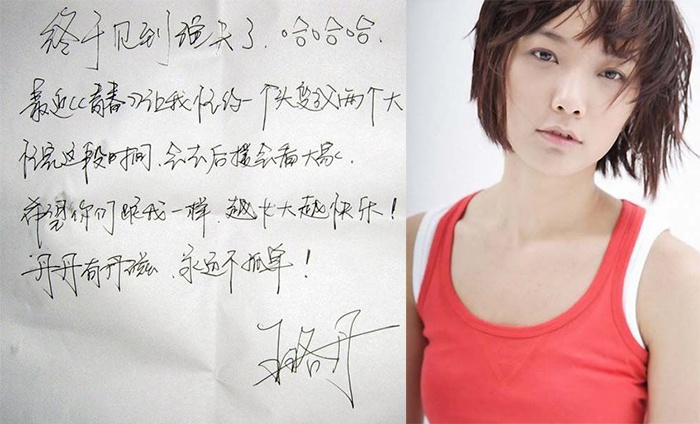 终于见到了.哈哈哈.
最近《青春》让我忙的一个头变成两个大
忙完这段时间,会去后援会看大家.
希望你们跟我一样,越长大越快乐!
丹丹有丹磁,永远不孤单!
王珞丹